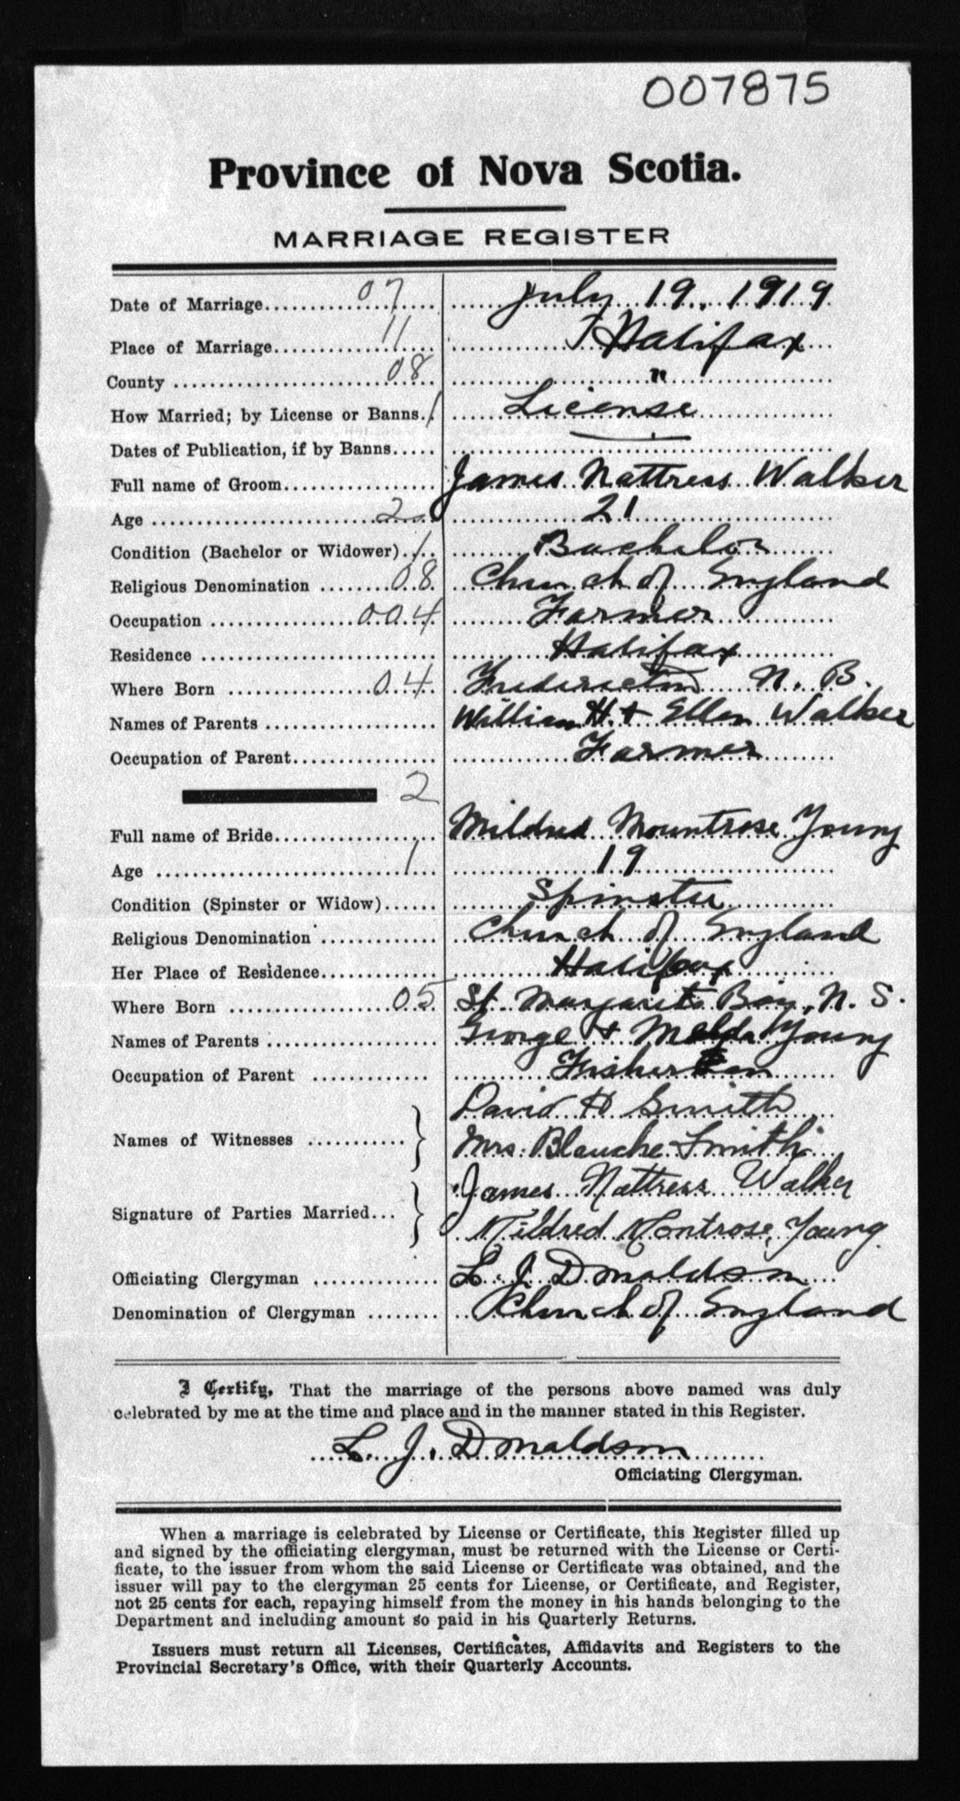 007875
Province of Nova Scotia.
MARRIAGE REGISTER
Date of Marriage 07 July 19, 1919
Place of Marriage 11 Halifax
County 08 "
How Married; by License or Banns 1 License
Dates of Publication, if by Banns
Full name of Groom James Nattress Walker
Age 2 21
Condition (Bachelor or Widower) 1 Bachelor
Religious Denomination 08 Church of England
Occupation 004 Farmer
Residence Halifax
Where Born 04 Fredericton N. B.
Names of Parents William H. + Ellen Walker
Occupation of Parent Farmer
2
Full name of Bride Mildred Mountrose Young
Age 1 19
Condition (Spinster or Widow) Spinster
Religious Denomination Church of England
Her Place of Residence Halifax
Where Born 05 St. Margarets Bay, N. S.
Names of Parents George + Young
Occupation of Parent
Names of Witnesses } David H Smith
Mrs. Blanche Smith
Signature of Parties Married } James Nattress Walker
Mildred Montrose Young
Officiating Clergyman L. J. Donaldson
Denomination of Clergyman Church of England
I Certify, That the marriage of the persons above named was duly
celebrated by me at the time and place and in the manner stated in this Register.
L. J. Donaldson
Officiating Clergyman.
When a marriage is celebrated by License or Certificate, this Register filled up
and signed by the officiating clergyman, must be returned with the License or Certi-
ficate, to the issuer from whom the said License or Certificate was obtained, and the
issuer will pay to the clergyman 25 cents for License, or Certificate, and Register,
not 25 cents for each, repaying himself from the money in his hands belonging to the
Department and including amount so paid in his Quarterly Returns.
Issuers must return all Licenses, Certificates, Affidavits and Registers to the
Provincial Secretary's Office, with their Quarterly Accounts.